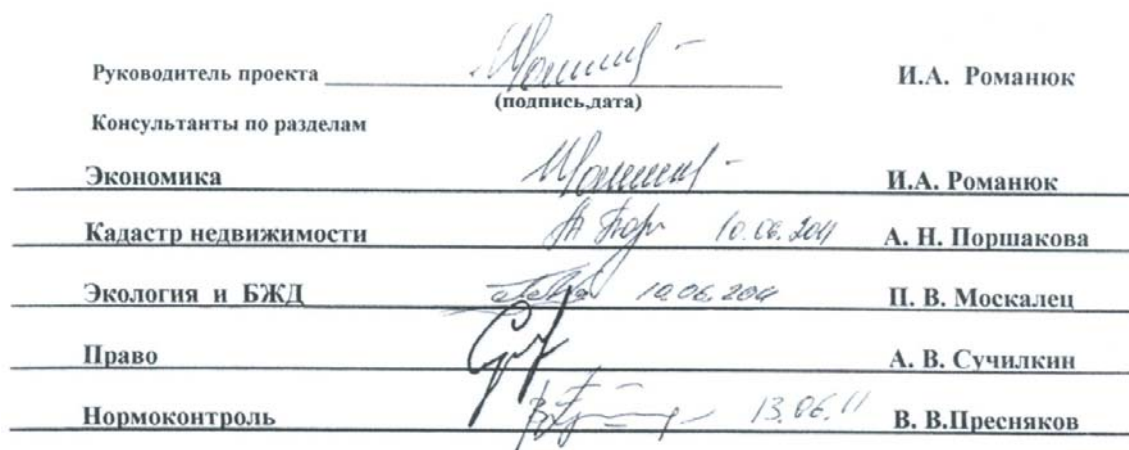 Руководитель проекта И.А. Романюк
(подпись,дата)
Консультанты по разделам
Экономика И.А. Романюк
Кадастр недвижимости 10.06.2011 А. Н. Поршакова
Экология и БЖД 10.06.2011 П. В. Москалец
Право А. В. Сучилкин
Нормоконтроль 13.06.11 В. В.Пресняков